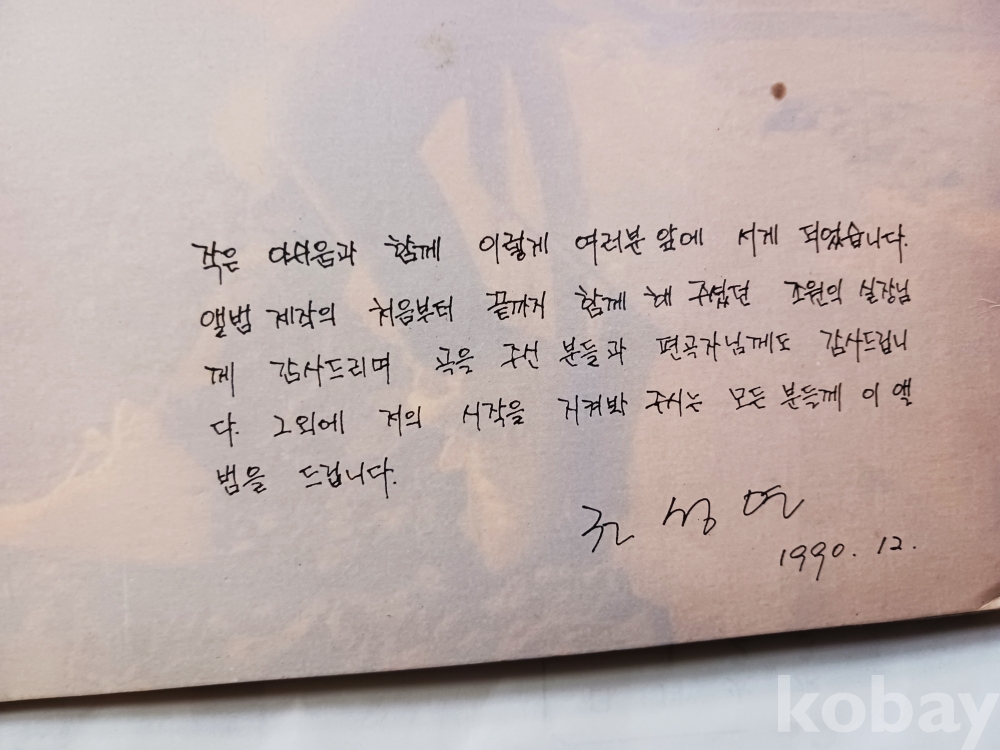 작은 아쉬움과 함께 이렇게 여러분 앞에 서게 되었습니다.
앨범 제작의 처음부터 끝까지 함께 해 주셨던 조원의 실장님
께 감사드리며 곡을 주신 분들과 편곡자님께도 감사드립니
다. 그외에 저의 시작을 지켜봐 주시는 모든 분들께 이 앨
범을 드립니다.
권 성 연
1990. 12.
kobay